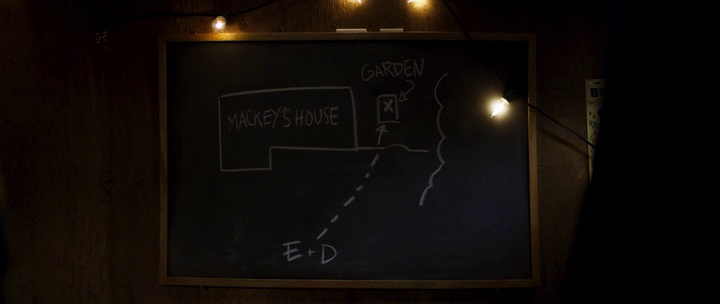 GARDEN
X
MACKEY'S HOUSE
E + D